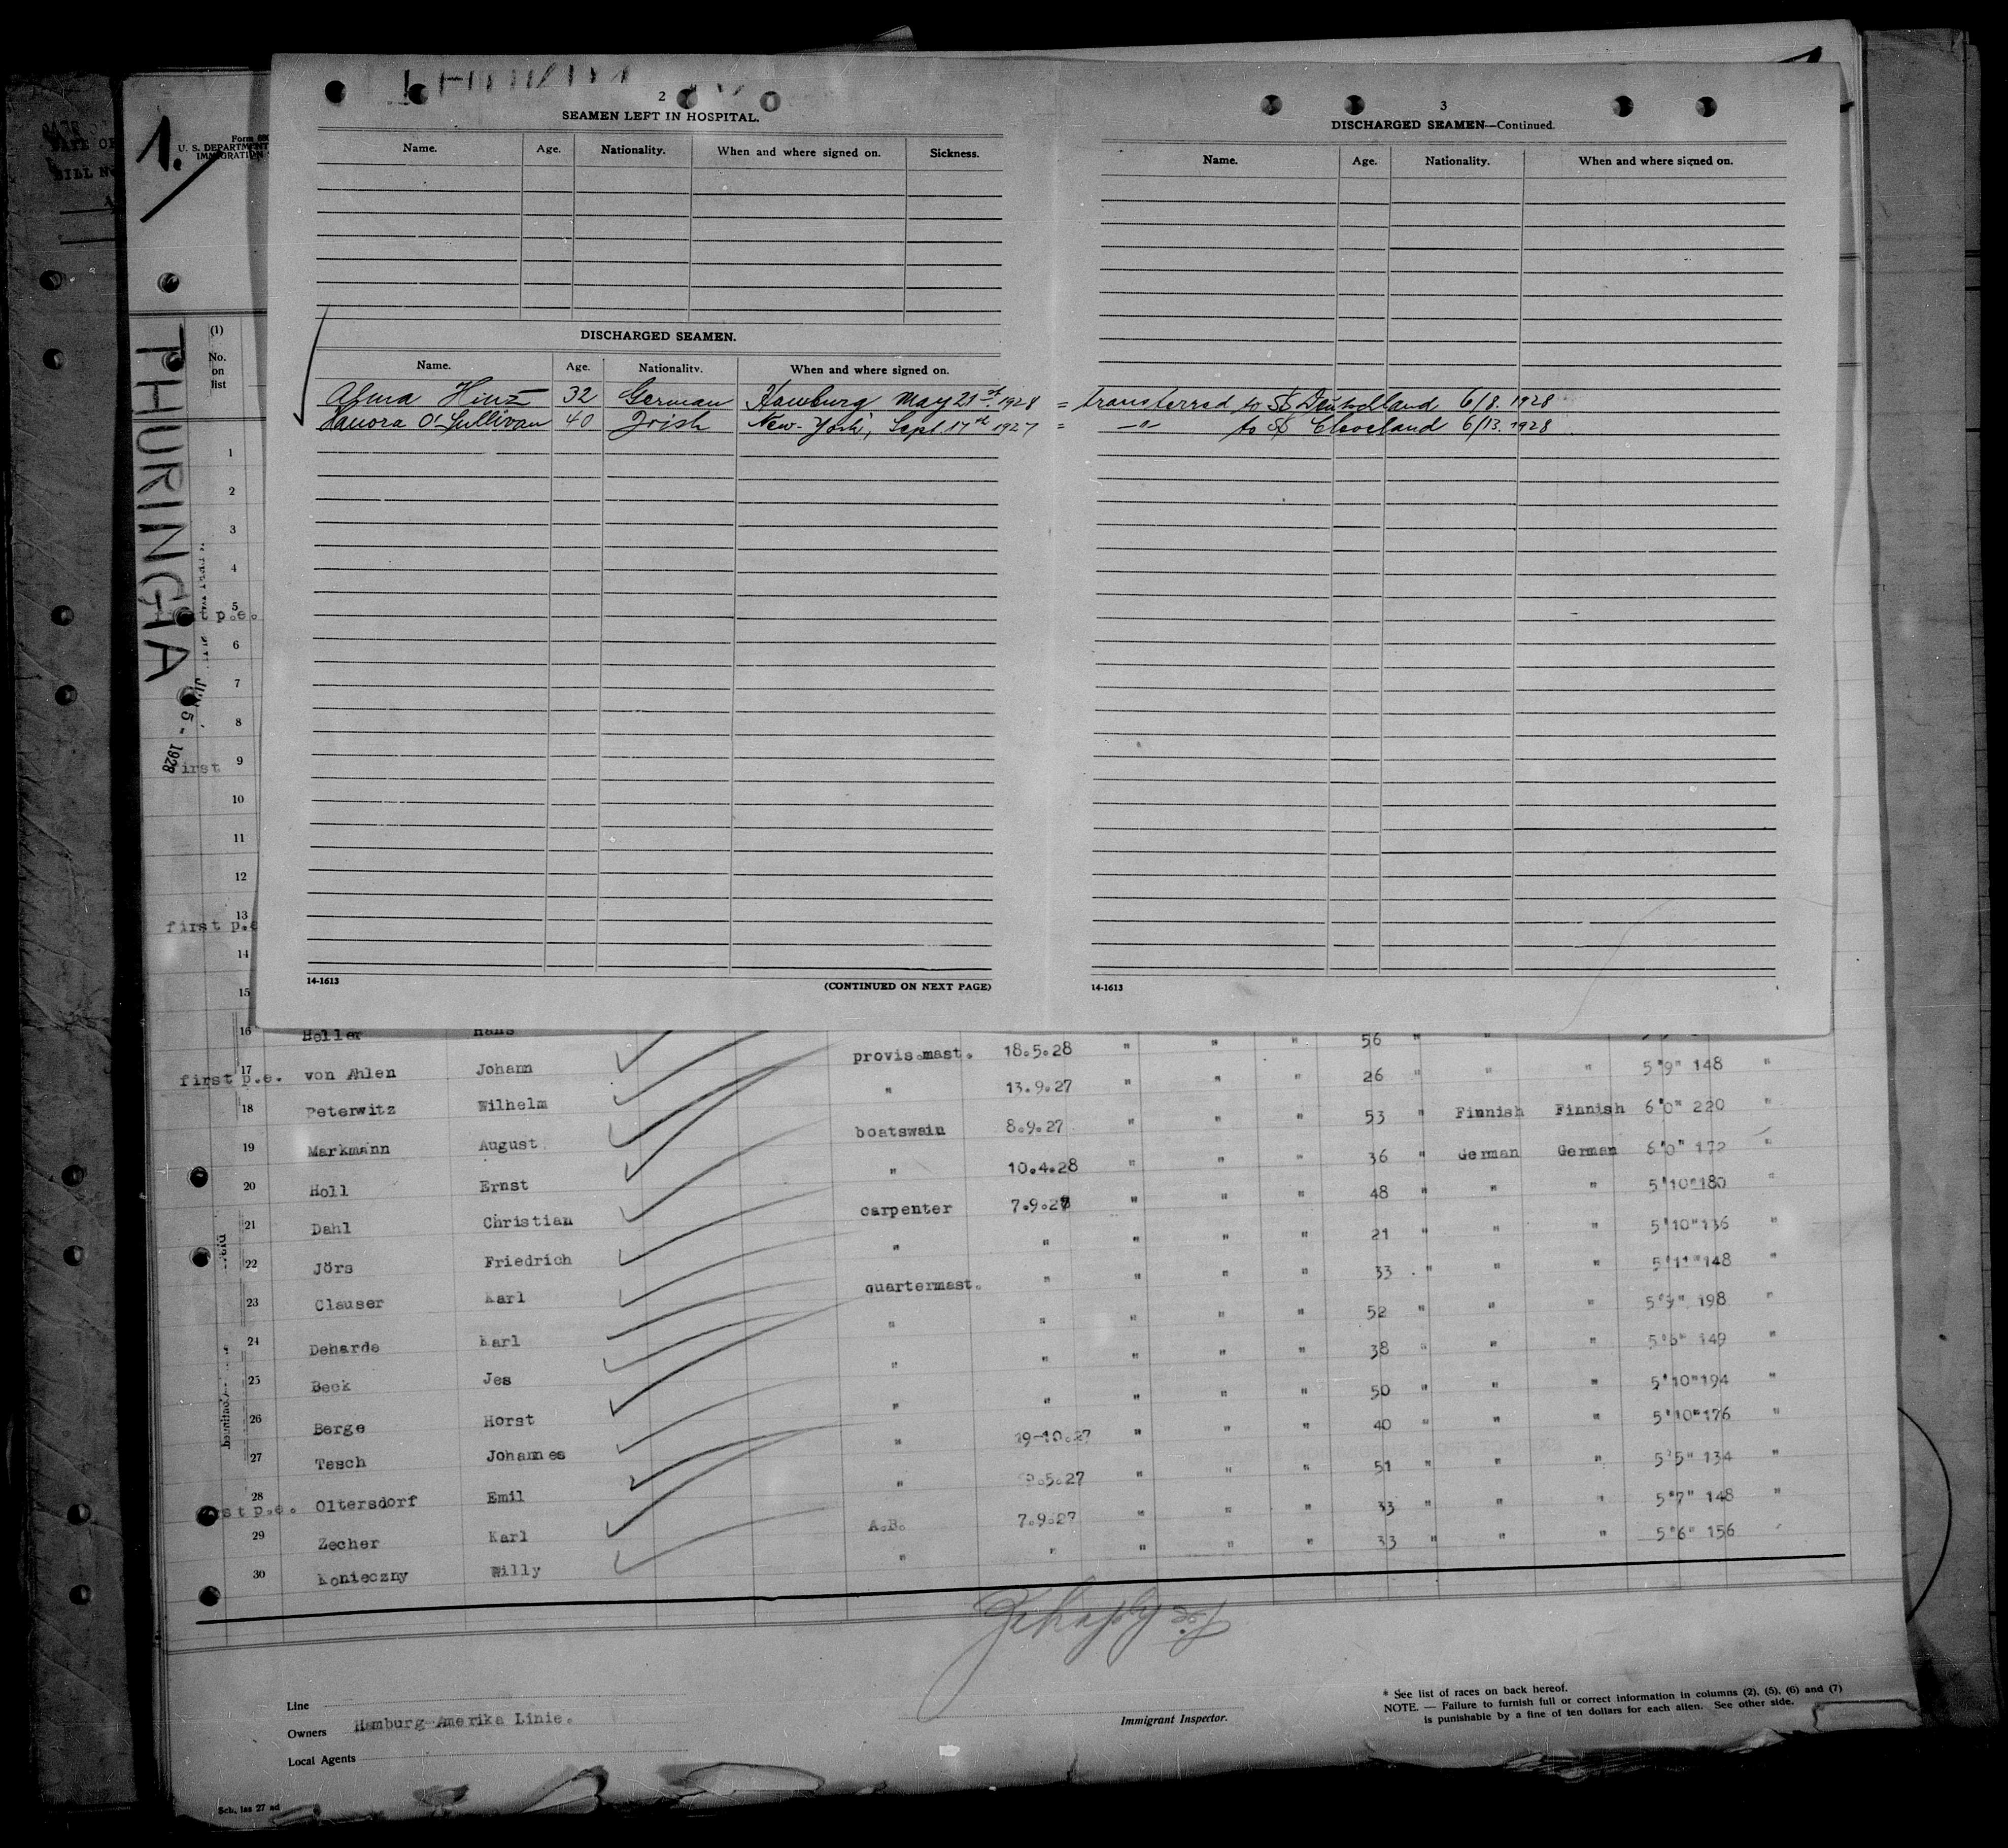 2
SEAMEN LEFT IN HOSPITAL.
Name. Age. Nationality. When and where signed on. Sickness.
DISCHARGED SEAMEN.
Name. Age. Nationality. When and where signed on.
Hinz 32 German Hamburg May 21st 1928 = transferred to SS Deutschland 6/8. 1928
Hanora O'Sullivan 40 Irish New-York, Sept. 17th 1927 = -"- to SS Cleveland 6/13. 1928
14-1613 (CONTINUED ON NEXT PAGE)
3
DISCHARGED SEAMEN—Continued.
Name. Age. Nationality. When and where signed on.
14-1613
1.
U. S. DEPARTMENT
IMMIGRATION
THURINGIA
JUN 5 - 1928
(1)
No.
on
list
1
2
3
4
5
p.e.
6
7
8
9
first
10
11
12
13
first p.e
14
15
16 Heller Hans provis.mast. 18.5.28 " " " 56 " " "
first p.e. 17 von Ahlen Johann " 13.9.27 " " " 26 " " " 5'9" 148 "
18 Peterwitz Wilhelm boatswain 8.9.27 " " " 53 " Finnish Finnish 6'0" 220 "
19 Markmann August " 10.4.28 " " " 36 " German German 6'0" 172
20 Holl Ernst carpenter 7.9.27 " " " 48 " " " 5'10"180 "
21 Dahl Christian " " " " " 21 " " " 5'10"136 "
22 Jörs Friedrich quartermast. " " " " 33 " " " 5'11"148 "
23 Clauser Karl " " " " " 52 " " " 5'9" 198 "
24 Deharde Karl " " " " " 38 " " " 5'6" 149 "
25 Beck Jes " " " " " 50 " " " 5'10"194 "
26 Berge Horst " 19-10.27 " " " 40 " " " 5'10"176 "
27 Tesch Johannes " .5.27 " " " 51 " " " 5'5" 134 "
28 p.e. Oltersdorf Emil A.B. 7.9.27 " " " 33 " " " 5'7" 148 "
29 Zecher Karl " " " " " 33 " " " 5'6" 156 "
30 Konieczny Willy
Line
Owners Hamburg-Amerika Linie.
Local Agents
Immigrant Inspector.
* See list of races on back hereof.
NOTE. — Failure to furnish full or correct information in columns (2), (5), (6) and (7)
is punishable by a fine of ten dollars for each alien. See other side.